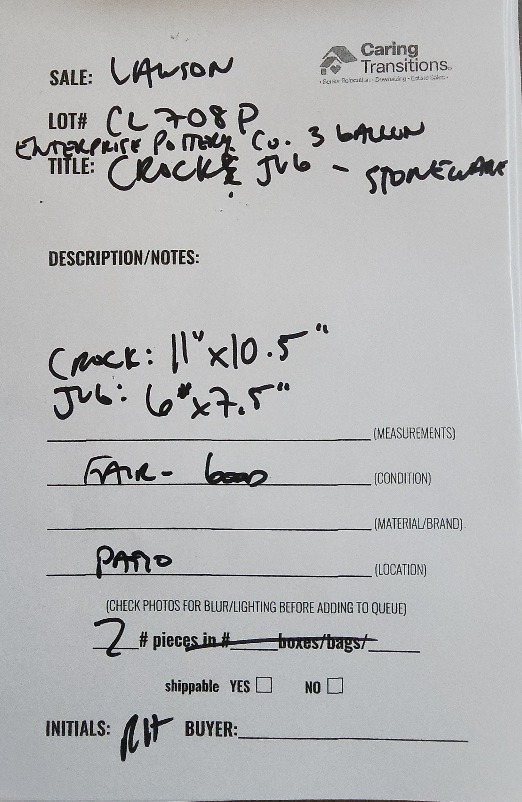 Caring
Transitions
Senior Relocation • Downsizing • Estate Sales
SALE: LAWSON
LOT# CL708P
ENTERPRISE POTTERY CO. 3 GALLON
TITLE: CROCK & JUG - STONEWARE
DESCRIPTION/NOTES:
CROCK: 11"x10.5"
JUG: 6"x7.5"
(MEASUREMENTS)
FAIR - GOOD (CONDITION)
(MATERIAL/BRAND)
PATIO (LOCATION)
(CHECK PHOTOS FOR BLUR/LIGHTING BEFORE ADDING TO QUEUE)
2 # pieces in # boxes/bags/
shippable YES NO
INITIALS: RH BUYER: